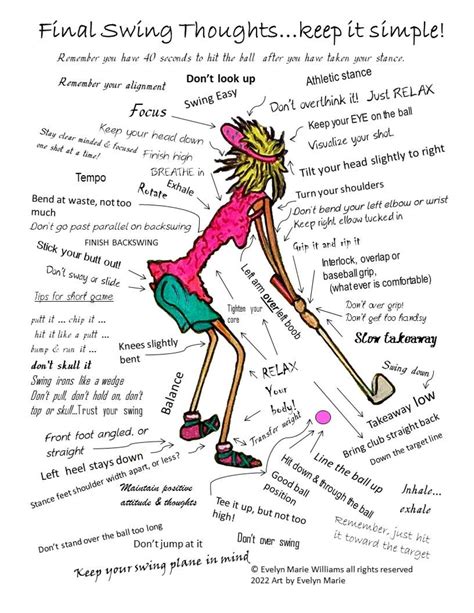 Final Swing Thoughts...keep it simple!
Remember you have 40 seconds to hit the ball after you have taken your stance.
Remember your alignment
Don't look up
Athletic stance
Swing Easy
Focus
Don't overthink it!! Just RELAX
Keep your EYE on the ball
Visualize your shot
Stay clear minded & focused
one shot at a time!
Keep your head down
Finish high
BREATHE in
Exhale
Rotate
Tempo
Tilt your head slightly to right
Turn your shoulders
Bend at waste, not too
much
Don't go past parallel on backswing
FINISH BACKSWING
Don't bend your left elbow or wrist
Keep right elbow tucked in
Grip it and rip it
Stick your butt out!
Don't sway or slide
Interlock, overlap or
baseball grip,
(what ever is comfortable)
Left arm over left boob
Tips for short game
Don't over grip!
Don't get too handsy
Tighten your
core
putt it ... chip it
hit it like a putt ...
bump & run it ...
don't skull it
Swing irons like a wedge
Don't pull, don't hold on, don't
top or skull...Trust your swing
Slow takeaway
Knees slightly
bent
Swing down
RELAX
Your
body!
Balance
Takeaway low
Bring club straight back
Down the target line
Transfer weight
Front foot angled, or
straight
Left heel stays down
Stance feet shoulder width apart, or less?
Line the ball up
Hit down & through the ball
Good ball
position
Maintain positive
attitude & thoughts
Tee it up, but not too
high!
Inhale...
exhale
Don't stand over the ball too long
Don't jump at it
Don't over swing
Remember, just hit
it toward the target
Keep your swing plane in mind
© Evelyn Marie Williams all rights reserved
2022 Art by Evelyn Marie